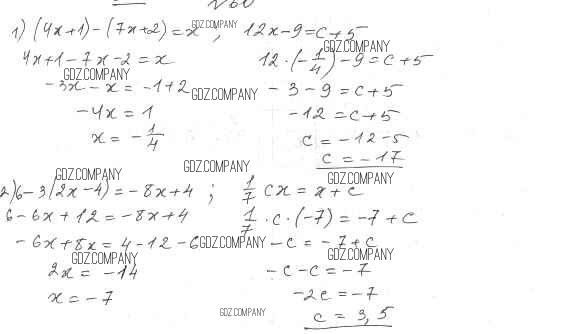 №60
1) (4x+1)-(7x+2)=x ; 12x-9=c+5
4x+1-7x-2=x 12·(-1/4)-9=c+5
-3x-x=-1+2 -3-9=c+5
-4x=1 -12=c+5
x=-1/4 c=-12-5
c=-17
2) 6-3(2x-4)=-8x+4 ; 1/7 cx=x+c
6-6x+12=-8x+4 1/7·c·(-7)=-7+c
-6x+8x=4-12-6 -c=-7+c
2x=-14 -c-c=-7
x=-7 -2c=-7
c=3,5
GDZ.COMPANY
GDZ.COMPANY
GDZ.COMPANY
GDZ.COMPANY
GDZ.COMPANY
GDZ.COMPANY
GDZ.COMPANY
GDZ.COMPANY
GDZ.COMPANY
GDZ.COMPANY
GDZ.COMPANY